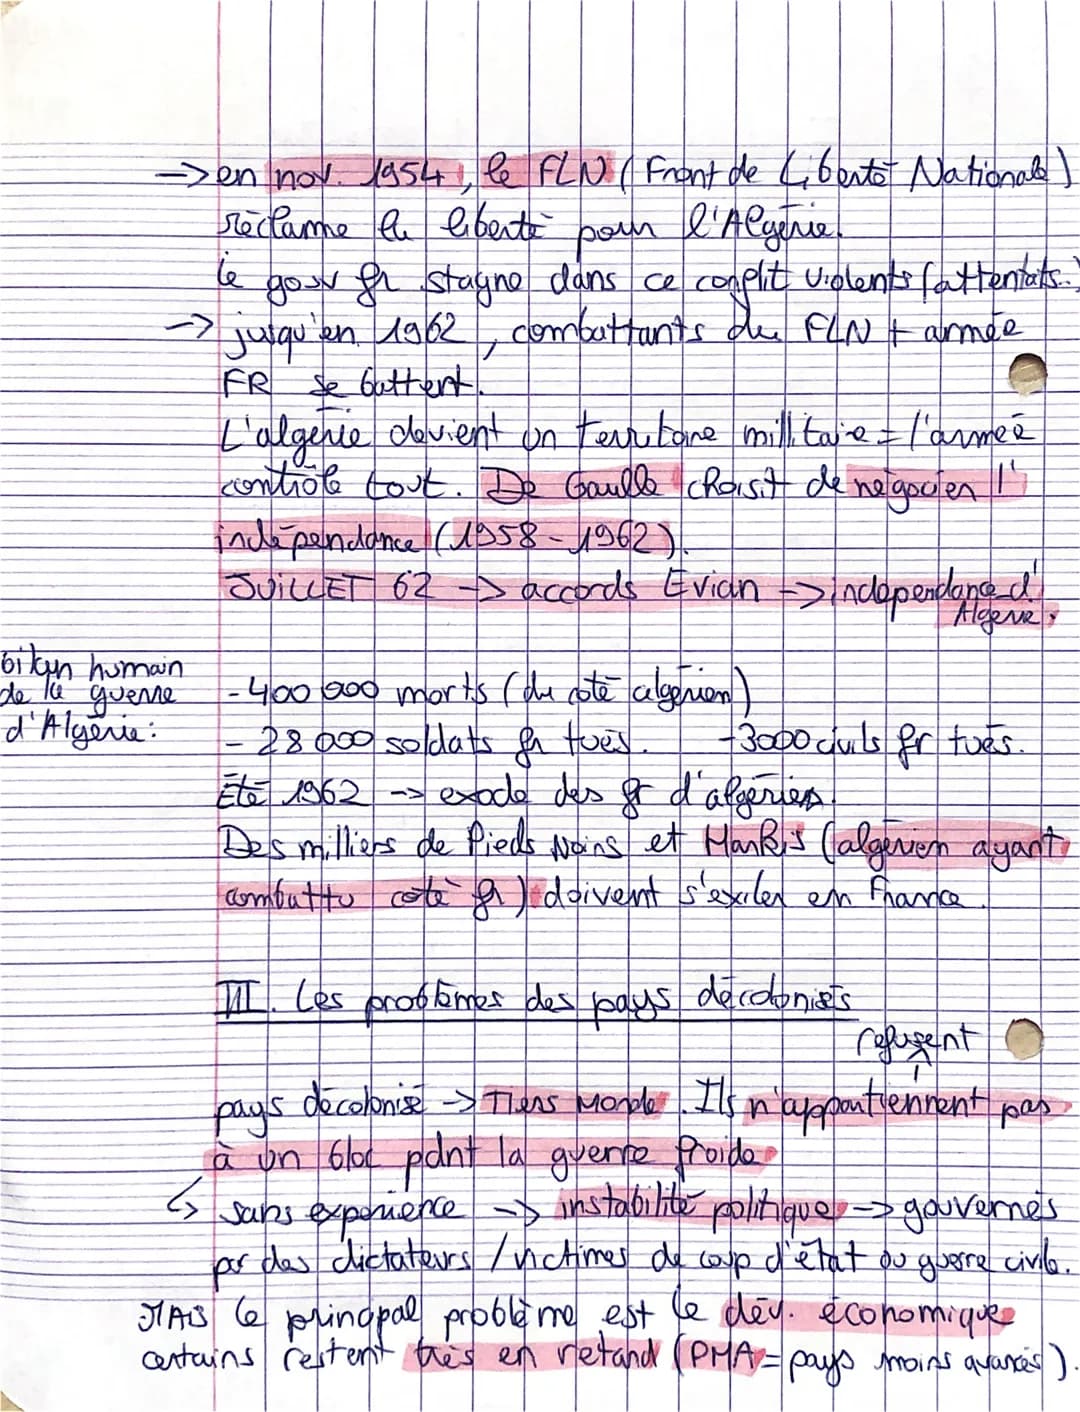 → en nov. 1954, le FLN (Front de Liberté Nationale)
réclame la liberté pour l'Algérie.
le gouv fr stagne dans ce conflit violents (attentats..)
→ jusqu'en 1962, combattants du FLN + armée
FR se battent.
L'algérie devient un territoire millitaire = l'armée
contrôle tout. De Gaulle choisit de négocier l'
indépendance (1958-1962).
JUILLET 62 → accords Evian → independance d'
Algerie.
bilan humain
de la guerre
d'Algérie:
- 400 000 morts (du coté algérien)
- 28 000 soldats fr tués. - 3000 civils fr tués.
Été 1962 → exode des fr d'algériens.
Des milliers de Pieds Noirs et Harkis (algérien ayant
combattu coté fr) doivent s'exiler en France.
III. Les problèmes des pays décolonisés
refusent
pays décolonisé → Tiers Monde. Ils n'appartiennent pas
à un bloc pdnt la guerre froide
↳ sans experience → instabilité politique → gouvernés
par des dictateurs / victimes de coup d'état ou guerre civile.
MAIS le principal problème est le dév. économique
certains restent très en retard (PMA = pays moins avancés).